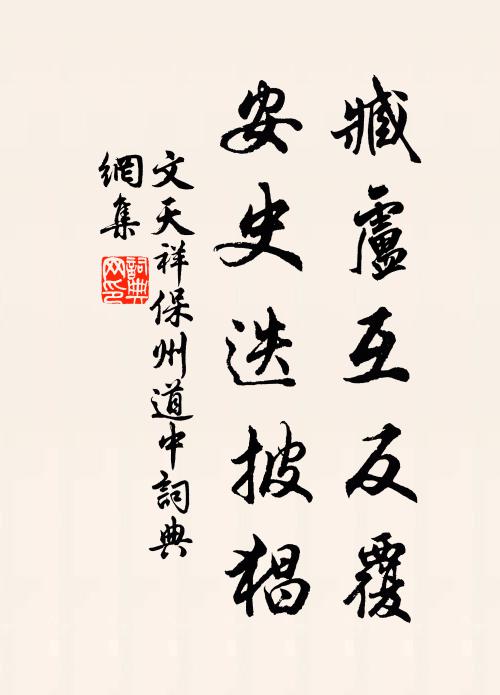 臧盧互反覆
安史迭披猖
文天祥保州道中詞典
網集
詞典網印